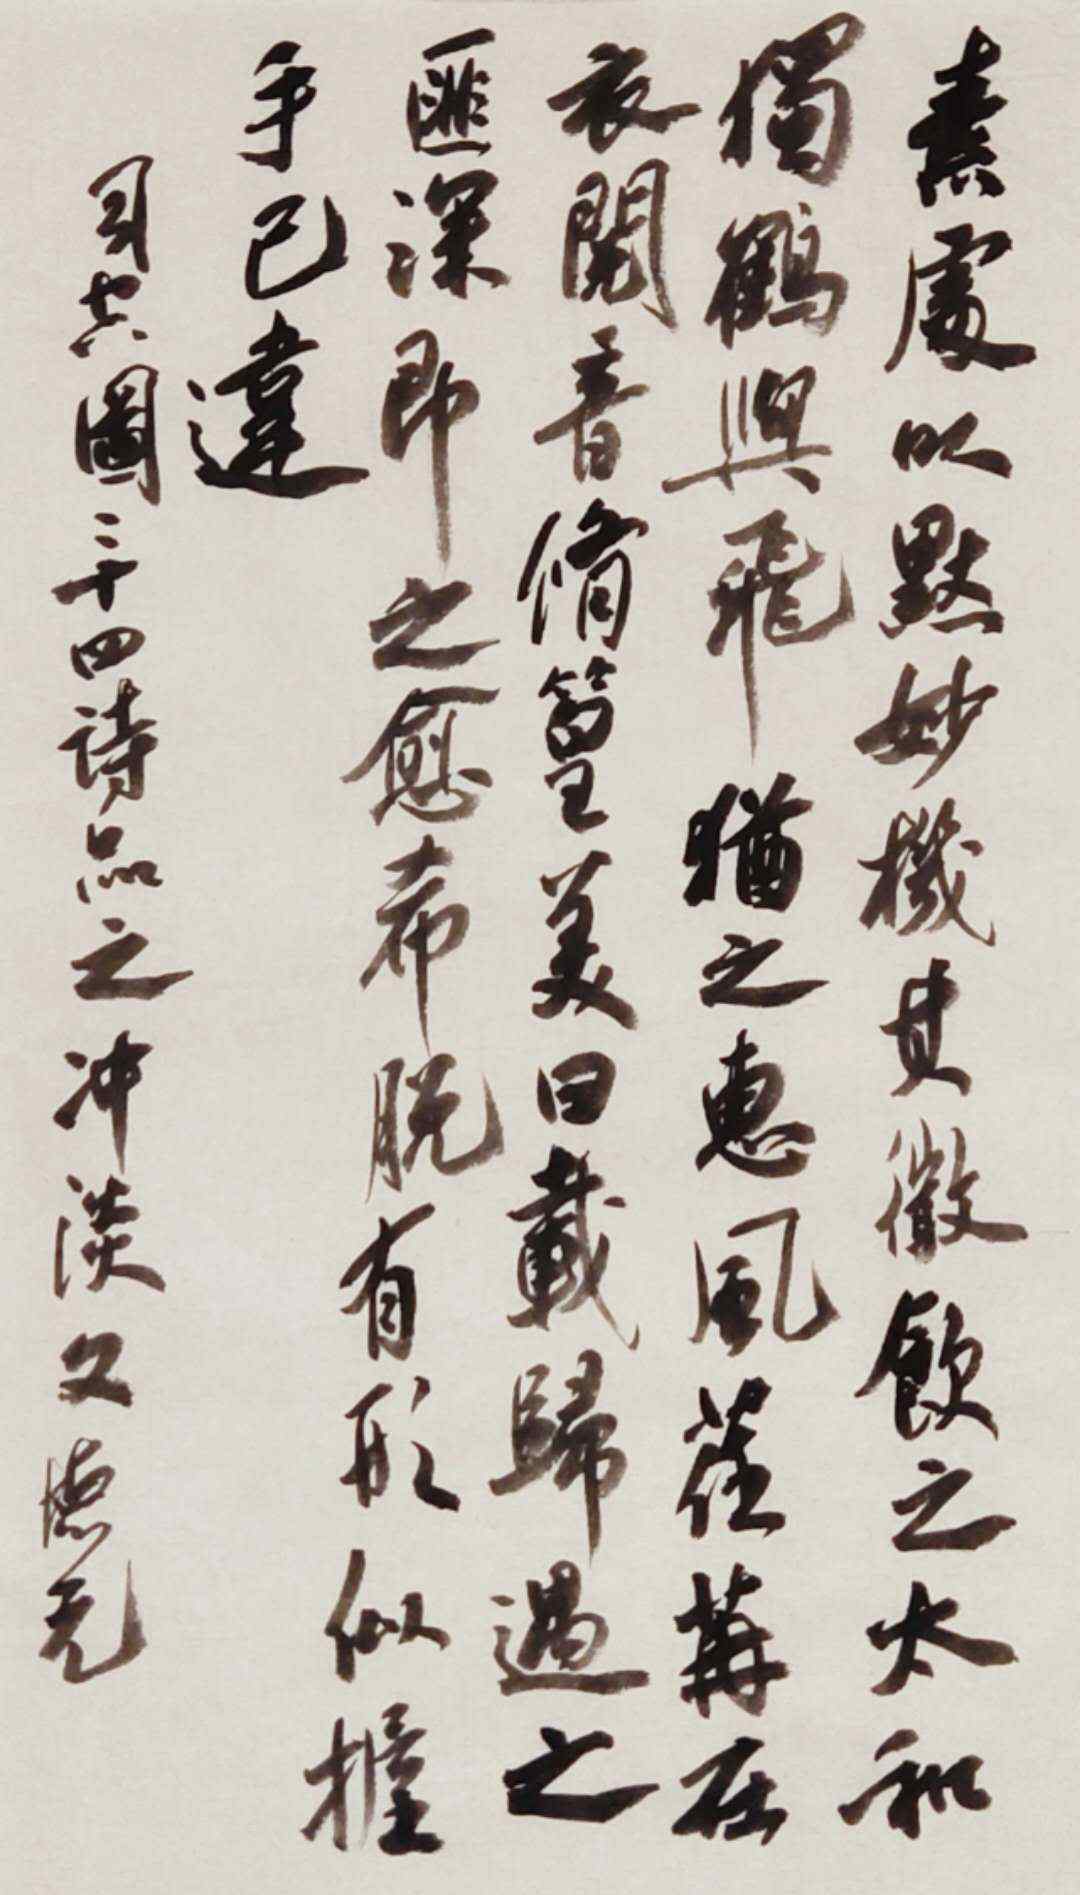 素處以默妙機其微飲之太和
獨鶴與飛猶之惠風荏苒在
衣閱音脩篁美曰載歸遇之
匪深即之愈希脫有形似握
手已違
司空圖二十四詩品之冲淡 又德元